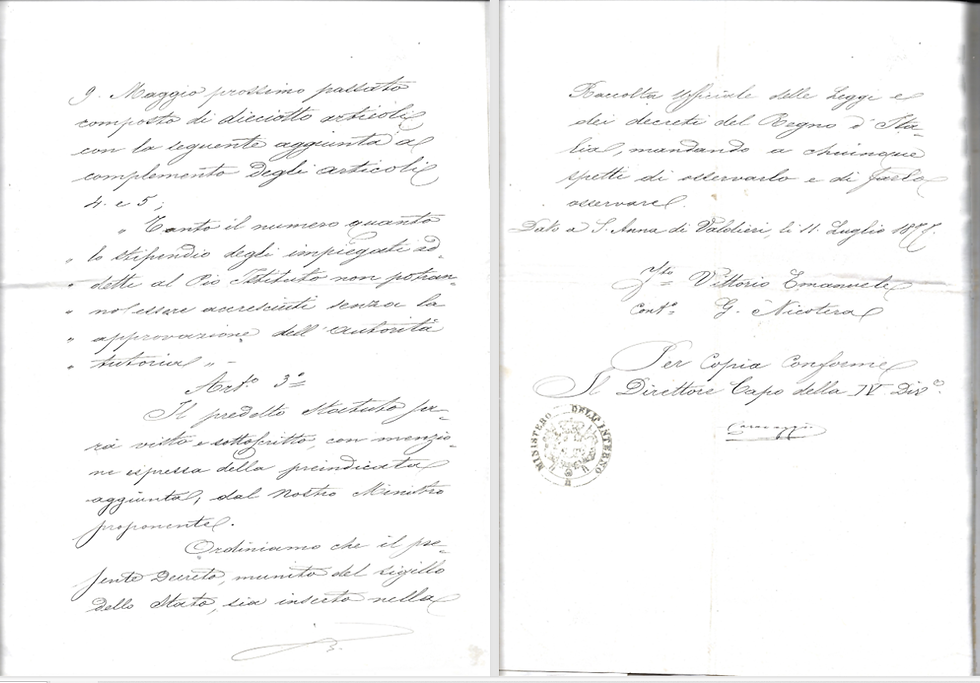 9. Maggio prossimo passato
composto di dicciotto articoli
con la seguente aggiunta al
complemento degli articoli
4. e 5;
" Tanto il numero quanto
" lo stipendio degli impiegati ad-
" dette al Pio Istituto non potran-
" no essere accresciuti senza la
" approvazione dell'autorità
" tutoria " -
Art.º 3º
Il predetto Statuto sa-
rà visto e sottoscritto, con menzio-
ne espressa della preindicata
aggiunta, dal Nostro Ministro
proponente.
Ordiniamo che il pre-
sente Decreto, munito del sigillo
dello Stato, sia inserto nella
Raccolta ufficiale delle Leggi e
dei decreti del Regno d'Ita-
lia, mandando a chiunque
spetti di osservarlo e di farlo
osservare.
Dato a S. Anna di Valdieri, li 11. Luglio 1877.
Fto Vittorio Emanuele
Contº G. Nicotera
Per Copia Conforme
Il Direttore Capo della IV Divº.
MINISTERO DELL'INTERNO